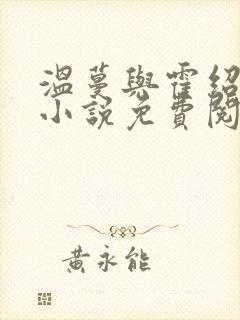 温蔓與霍紹
小說免費閱
黃永能